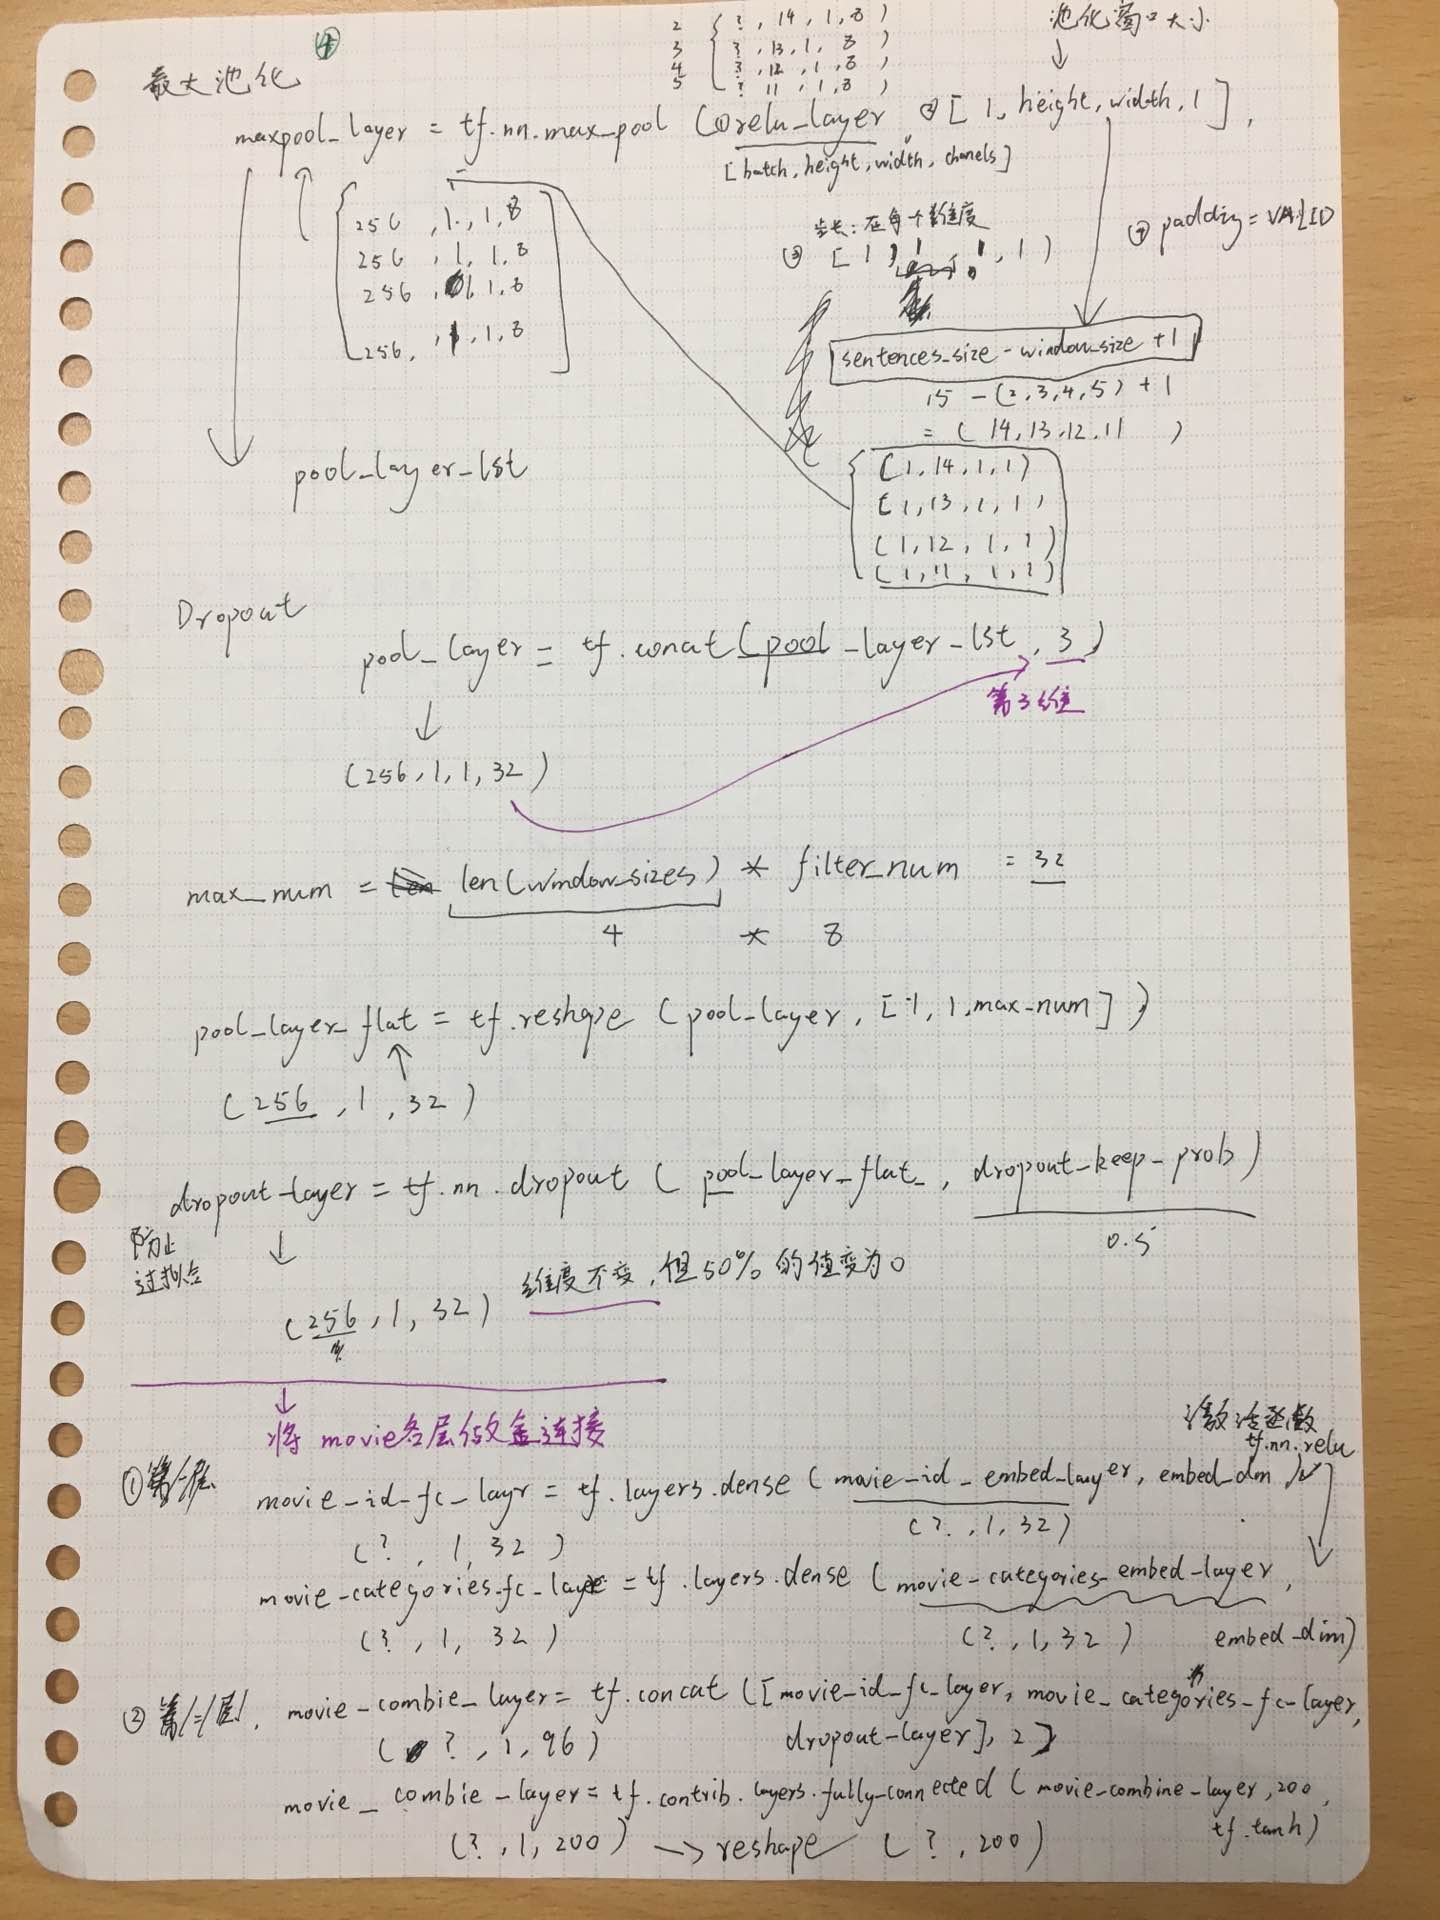 ④
2 (?, 14, 1, 8)
3 (?, 13, 1, 8)
4 (?, 12, 1, 8)
5 (? 11, 1, 8)
池化窗口大小
最大池化
maxpool_layer = tf.nn.max_pool (①relu_layer, ②[1, height, width, 1],
[batch, height, width, chanels]
256, 1, 1, 8
256, 1, 1, 8
256, 1, 1, 8
256, 1, 1, 8
步长:在每个维度
③ [1, 1, 1, 1)
④ padding = VALID
sentences_size - window_size + 1
15 - (2,3,4,5) + 1
= (14,13,12,11)
[1, 14, 1, 1)
[1, 13, 1, 1)
(1, 12, 1, 1)
(1, 11, 1, 1)
pool_layer_lst
Dropout
pool_layer = tf.concat(pool_layer_lst, 3)
第3维
(256, 1, 1, 32)
max_num = len(window_sizes) * filter_num = 32
4 * 8
pool_layer_flat = tf.reshape (pool_layer, [-1, 1, max_num])
(256, 1, 32)
dropout_layer = tf.nn.dropout (pool_layer_flat_, dropout_keep_prob)
0.5
防止
过拟合
(256, 1, 32) 维度不变,但50%的值变为0
将movie各层做全连接
激活函数
tf.nn.relu
①第一层
movie_id_fc_layr = tf.layers.dense (movie_id_embed_layer, embed_dm)
(?, 1, 32)
(?, 1, 32)
movie_categories_fc_laye = tf.layers.dense (movie_categories_embed_layer,
embed_dim)
(?, 1, 32)
(?, 1, 32)
②第二层, movie_combie_layer = tf.concat ([movie_id_fc_layer, movie_categories_fc_layer,
dropout_layer], 2]
(?, 1, 96)
movie_combie_layer = tf.contrib.layers.fully_connected (movie_combine_layer, 200,
tf.tanh)
(?, 1, 200) → reshape (?, 200)